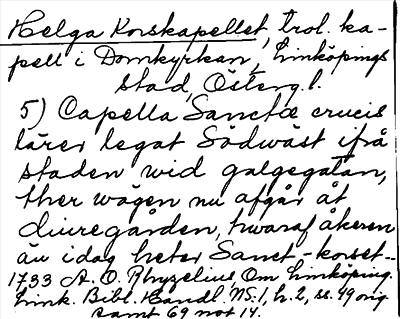 Helga Korskapellet, trol. ka-
pell i Domkyrkan, Linköpings
stad, Österg.l.
5) Capella Sanctæ crucis
lärer legat Södwäst ifrå
staden wid galgegatan,
ther wägen nu afgår åt
diuregården, hwaraf åkeren
än idag heter Sanct-korset--
1733 A. O. Rhyzelius, Om Linköping.
Link. Bibl. Handl. NS. 1, h. 2, ss. 49 orig
samt 69 not 14.